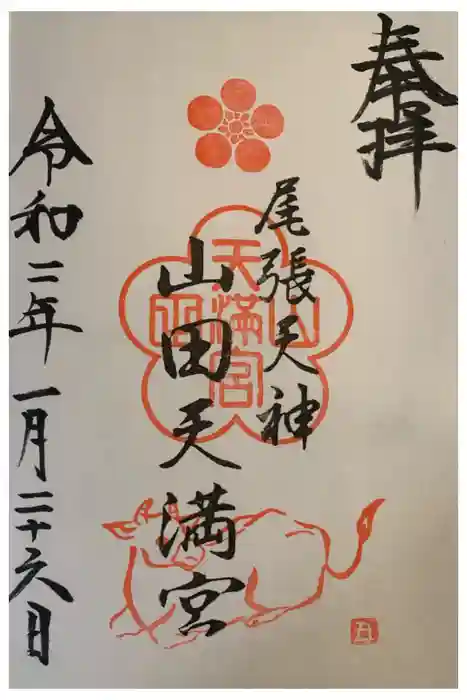 奉拝
尾張天神
山田天満宮
山田
天満宮
令和二年一月二十六日